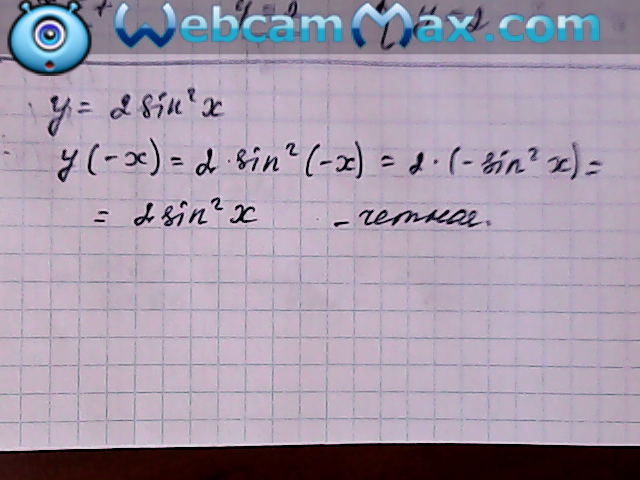 WebcamMax.com
y = 2 sin² x
y (-x) = 2 · sin² (-x) = 2 · (- sin² x) =
= 2 sin² x - четная.